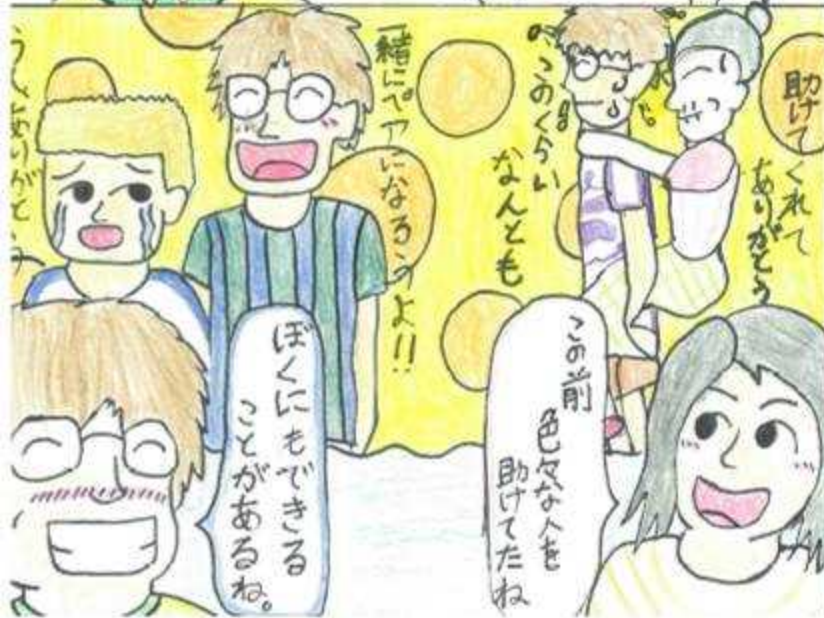 助けてくれて
ありがとう
このくらい
なんとも
一緒にペアになろうよ!!
うん、ありがとう
この前
色々な人を
助けてたね
ぼくにもできる
ことがあるね。